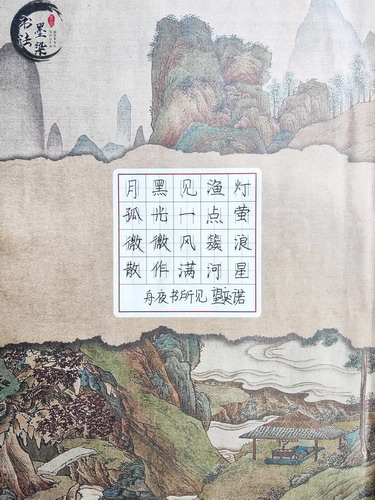 墨梁
书法
月黑见渔灯
孤光一点萤
微微风簇浪
散作满河星
舟夜书所见